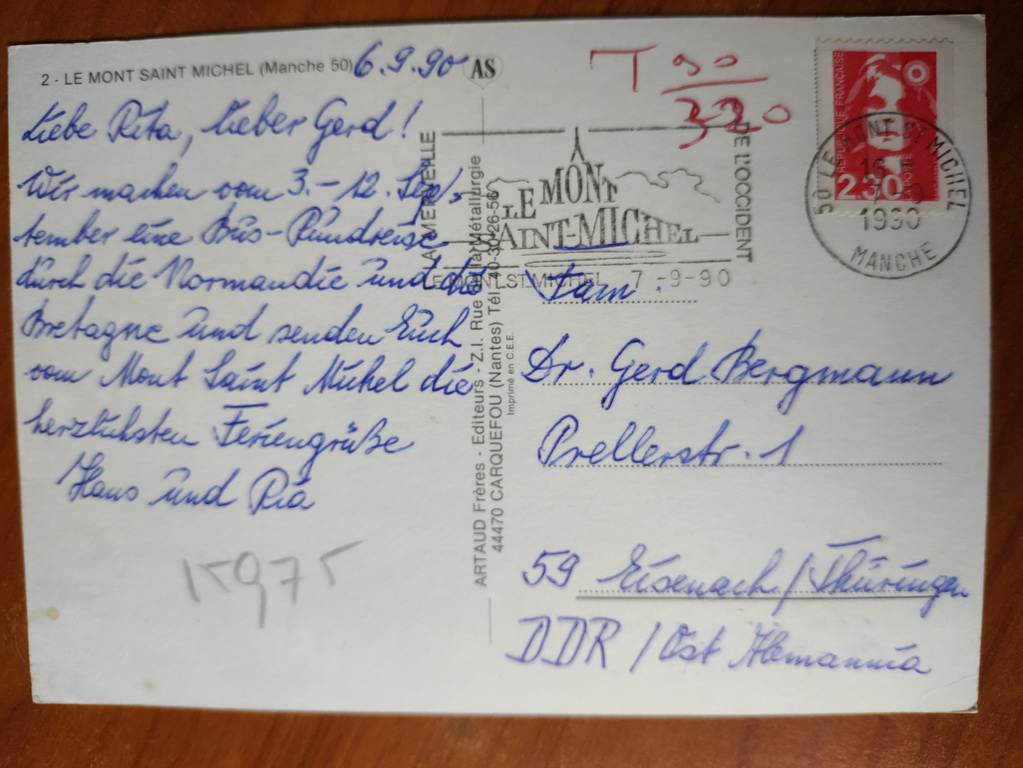 2 - LE MONT SAINT MICHEL (Manche 50)
6.9.90
AS
Liebe Rita, lieber Gerd!
Wir machen vom 3.-12. Sep-
tember eine Bus-Rundreise
durch die Normandie und die
Bretagne und senden Euch
vom Mont Saint Michel die
herzlichsten Feriengrüße
Hans und Ria
15975
ARTAUD Frères - Editeurs - Z.I. Rue de la Métallurgie
44470 CARQUEFOU (Nantes) Tél. 40-30-26-56
Imprimé en C.E.E.
T 90
320
LA MERVEILLE
LE MONT
SAINT-MICHEL
DE L'OCCIDENT
LE MONT ST MICHEL 7-9-90
RÉPUBLIQUE FRANÇAISE
2.30
50 LE MONT-ST-MICHEL
1990
MANCHE
Fam.
Dr. Gerd Bergmann
Prellerstr. 1
59 Eisenach/Thüringen
DDR/Ost Alemannia